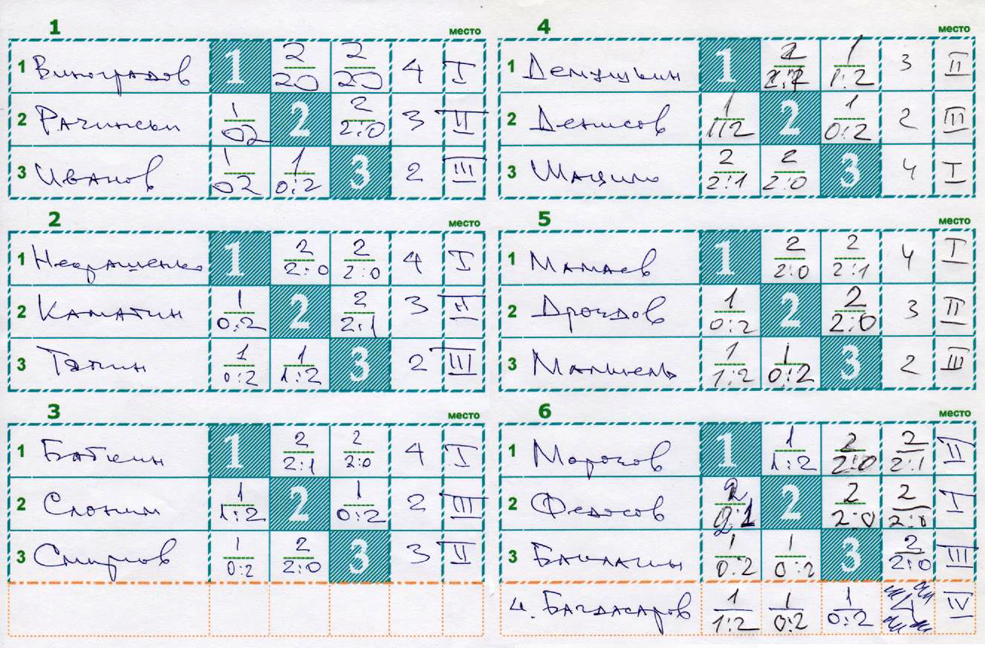 1
место
1 Виноградов 1 2/20 2/20 4 I
2 Рачински 1/02 2 2/2:0 3 II
3 Иванов 1/02 1/0:2 3 2 III
2
место
1 1 2/2:0 2/2:0 4 I
2 Каматин 1/0:2 2 2/2:1 3 II
3 Тяпин 1/0:2 1/1:2 3 2 III
3
место
1 Баткин 1 2/2:1 2/2:0 4 I
2 Слоним 1/1:2 2 1/0:2 2 III
3 Смирнов 1/0:2 2/2:0 3 3 II
4
место
1 Демушкин 1 2 1/1:2 3 II
2 Денисов 1/1:2 2 1/0:2 2 III
3 2/2:1 2/2:0 3 4 I
5
место
1 Мамаев 1 2/2:0 2/2:1 4 I
2 Дроздов 1/0:2 2 2/2:0 3 II
3 1/1:2 1/0:2 3 2 III
6
место
1 Морозов 1 1/1:2 2/2:0 2/2:1 II
2 Федосов 2/2:1 2 2/2:0 2/2:0 I
3 1/0:2 1/0:2 3 2/2:0 III
4. Багдасаров 1/1:2 1/0:2 1/0:2 4 IV